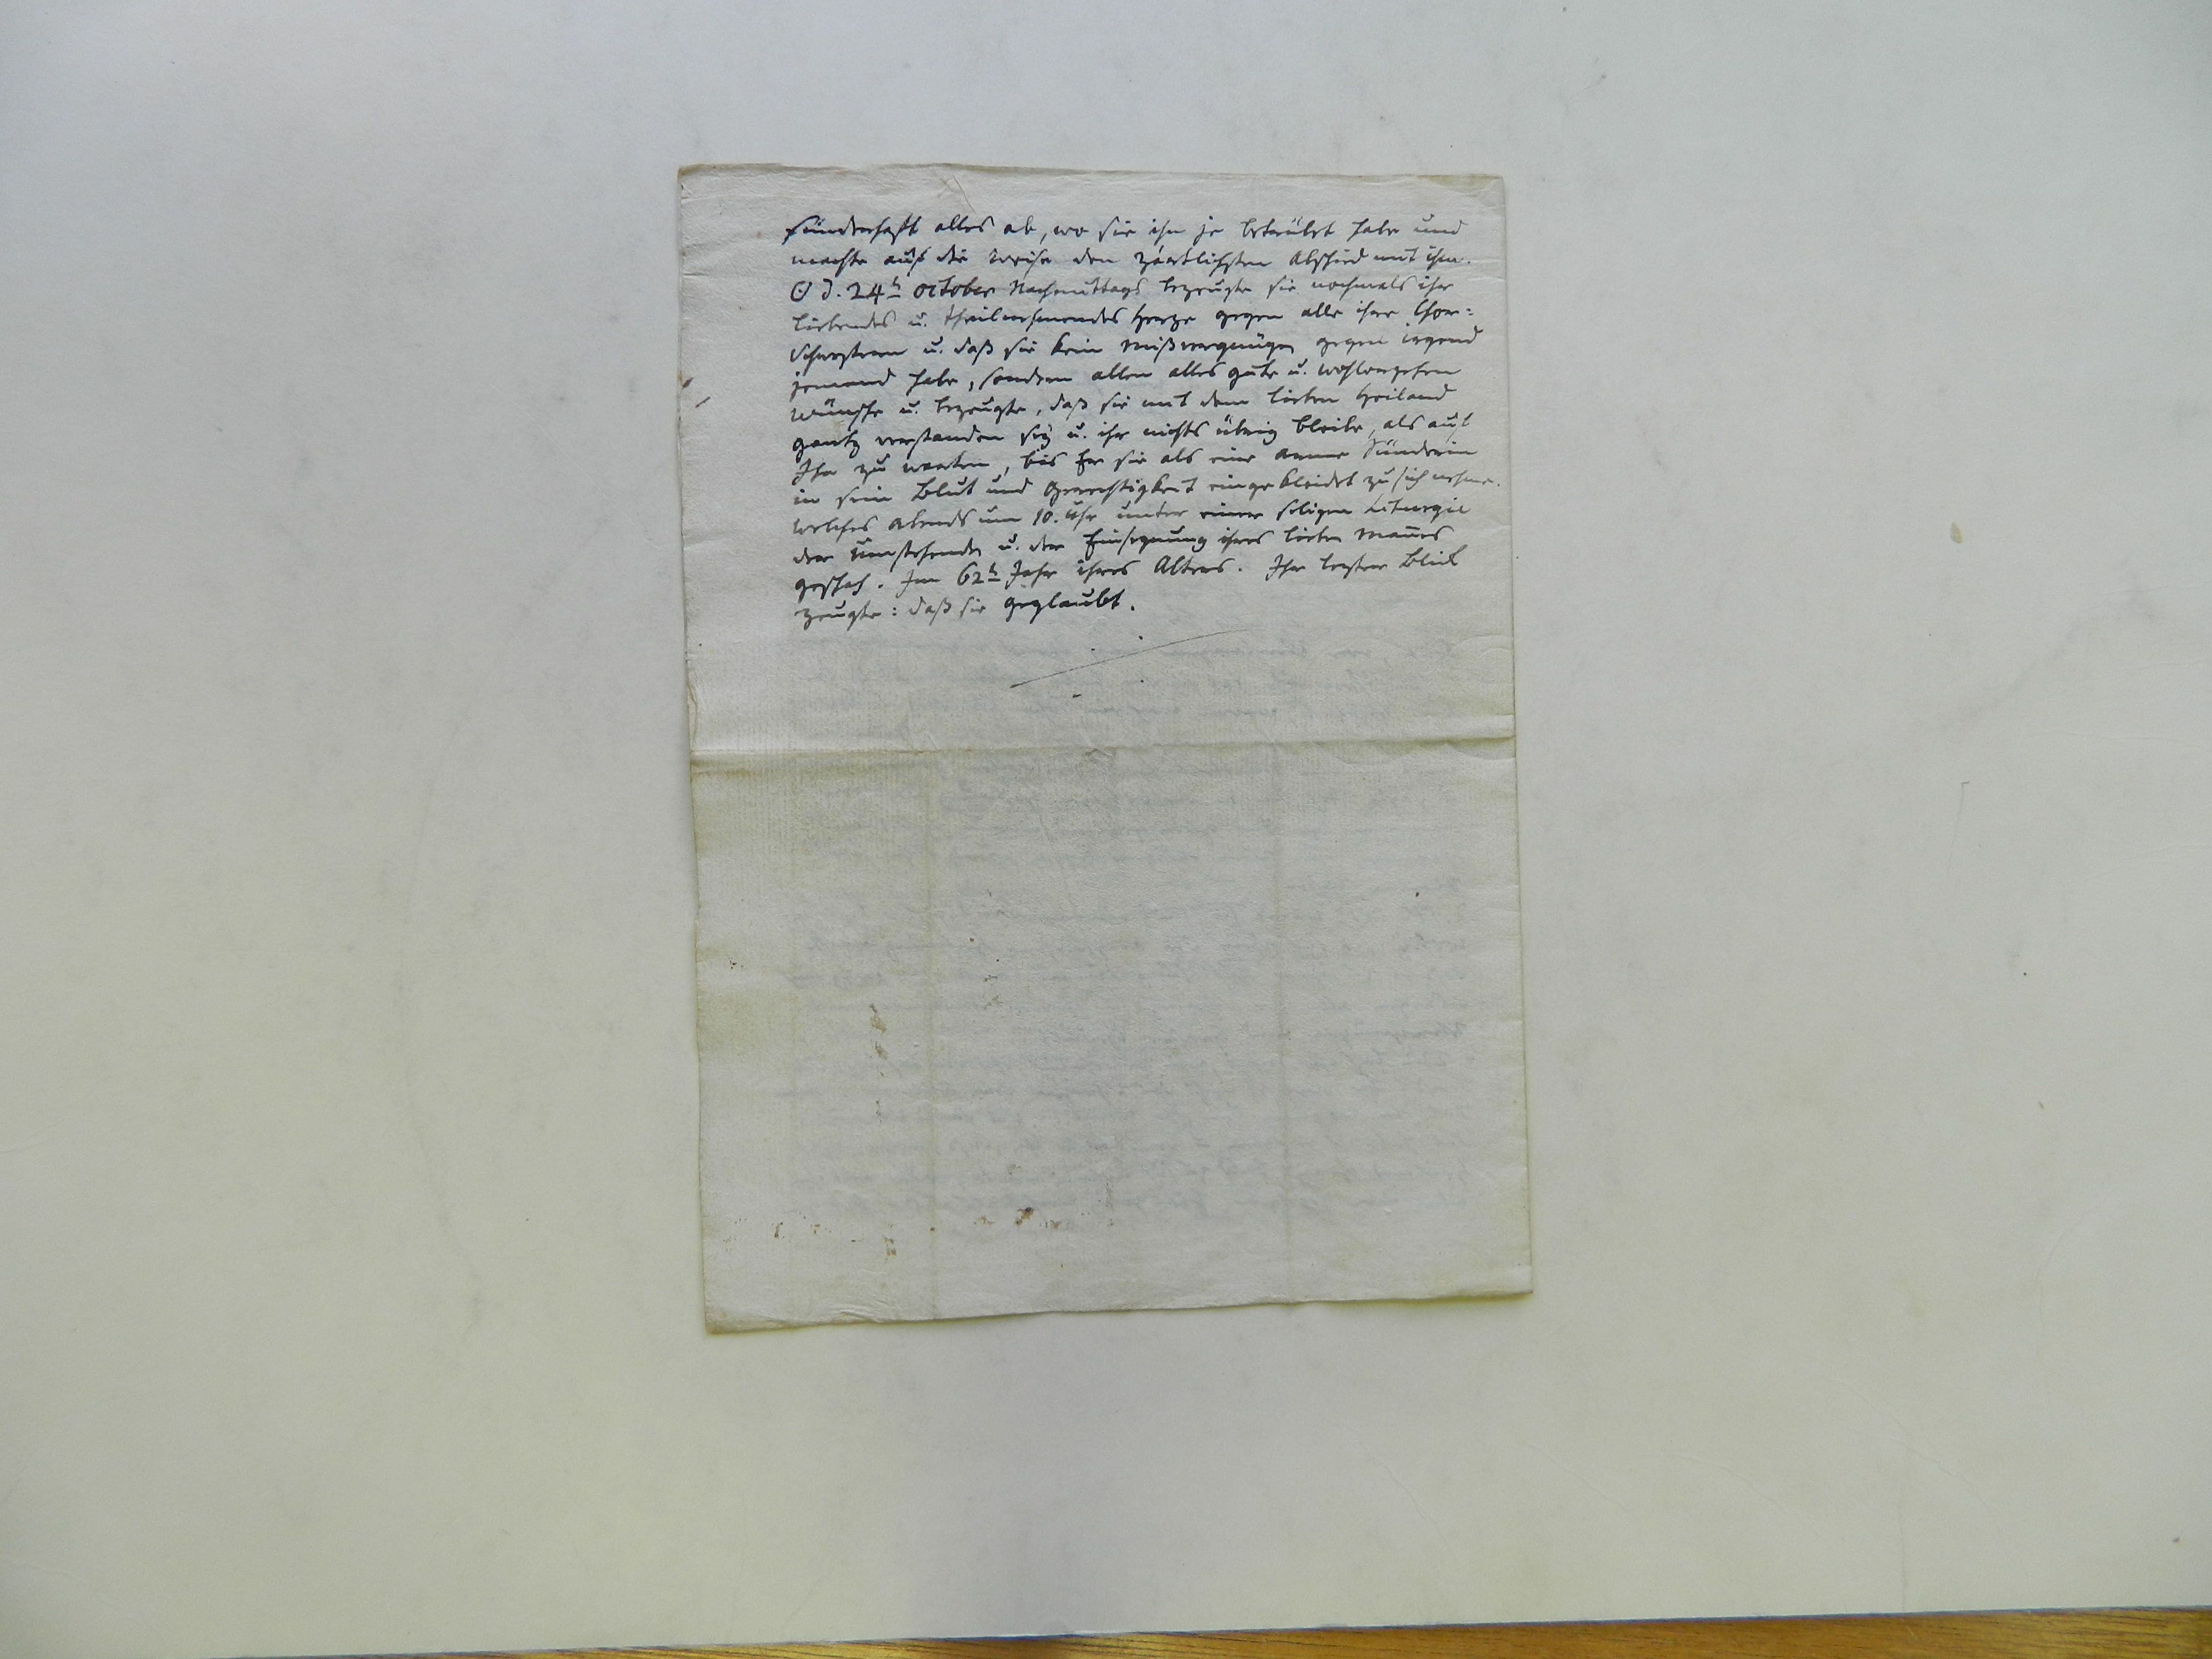 sünderhaft alles ab, wo sie ihn je betrübt habe und
machte auf die Weise den zärtlichsten Abschied mit ihm.
☉ d. 24t october Nachmittags bezeugte sie nochmals ihr
liebendes u. theilnehmendes Herze gegen alle ihre Chor=
Schwestern u. daß sie kein Mißvergnügen gegen irgend
jemand habe, sondern allen alles gute u. Wohlergehen
wünsche u. bezeugte, daß sie mit dem lieben Heiland
gantz verstanden sey u. ihr nichts übrig bleibe, als auf
Ihn zu warten, bis Er sie als eine arme Sünderin
in sein Blut und Gerechtigkeit eingekleidet zu sich nehme.
welches abends um 10. Uhr unter einer seligen Liturgie
der Umstehenden u. der Einsegnung ihres lieben Mañes
geschah. Im 62t Jahr ihres Alters. Ihr letzter Blick
zeugte: daß sie geglaubt.